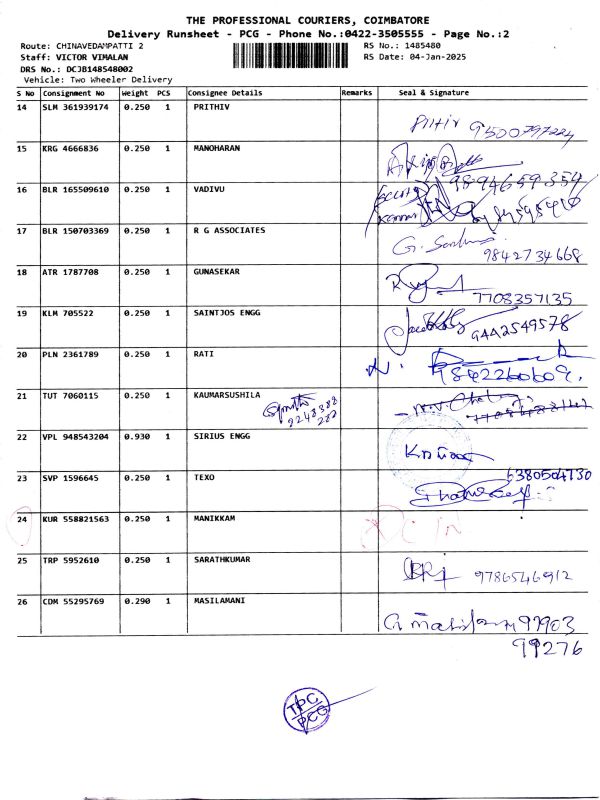 THE PROFESSIONAL COURIERS, COIMBATORE
Delivery Runsheet - PCG - Phone No.:0422-3505555 - Page No.:2
Route: CHINAVEDAMPATTI 2 RS No.: 1485480
Staff: VICTOR VIMALAN RS Date: 04-Jan-2025
DRS No.: DCJB148548002
Vehicle: Two Wheeler Delivery
S No Consignment No Weight PCS Consignee Details Remarks Seal & Signature
14 SLM 361939174 0.250 1 PRITHIV
9500797224
15 KRG 4666836 0.250 1 MANOHARAN
9894659354
16 BLR 165509610 0.250 1 VADIVU
17 BLR 150703369 0.250 1 R G ASSOCIATES
9842734668
18 ATR 1787708 0.250 1 GUNASEKAR
7708357135
19 KLM 705522 0.250 1 SAINTJOS ENGG
9442549578
20 PLN 2361789 0.250 1 RATI
9842260609
21 TUT 7060115 0.250 1 KAUMARSUSHILA
22 VPL 948543204 0.930 1 SIRIUS ENGG
23 SVP 1596645 0.250 1 TEXO 6380504730
24 KUR 558821563 0.250 1 MANIKKAM
25 TRP 5952610 0.250 1 SARATHKUMAR
9786546912
26 CDM 55295769 0.290 1 MASILAMANI
97903
99276
TPC
PCG